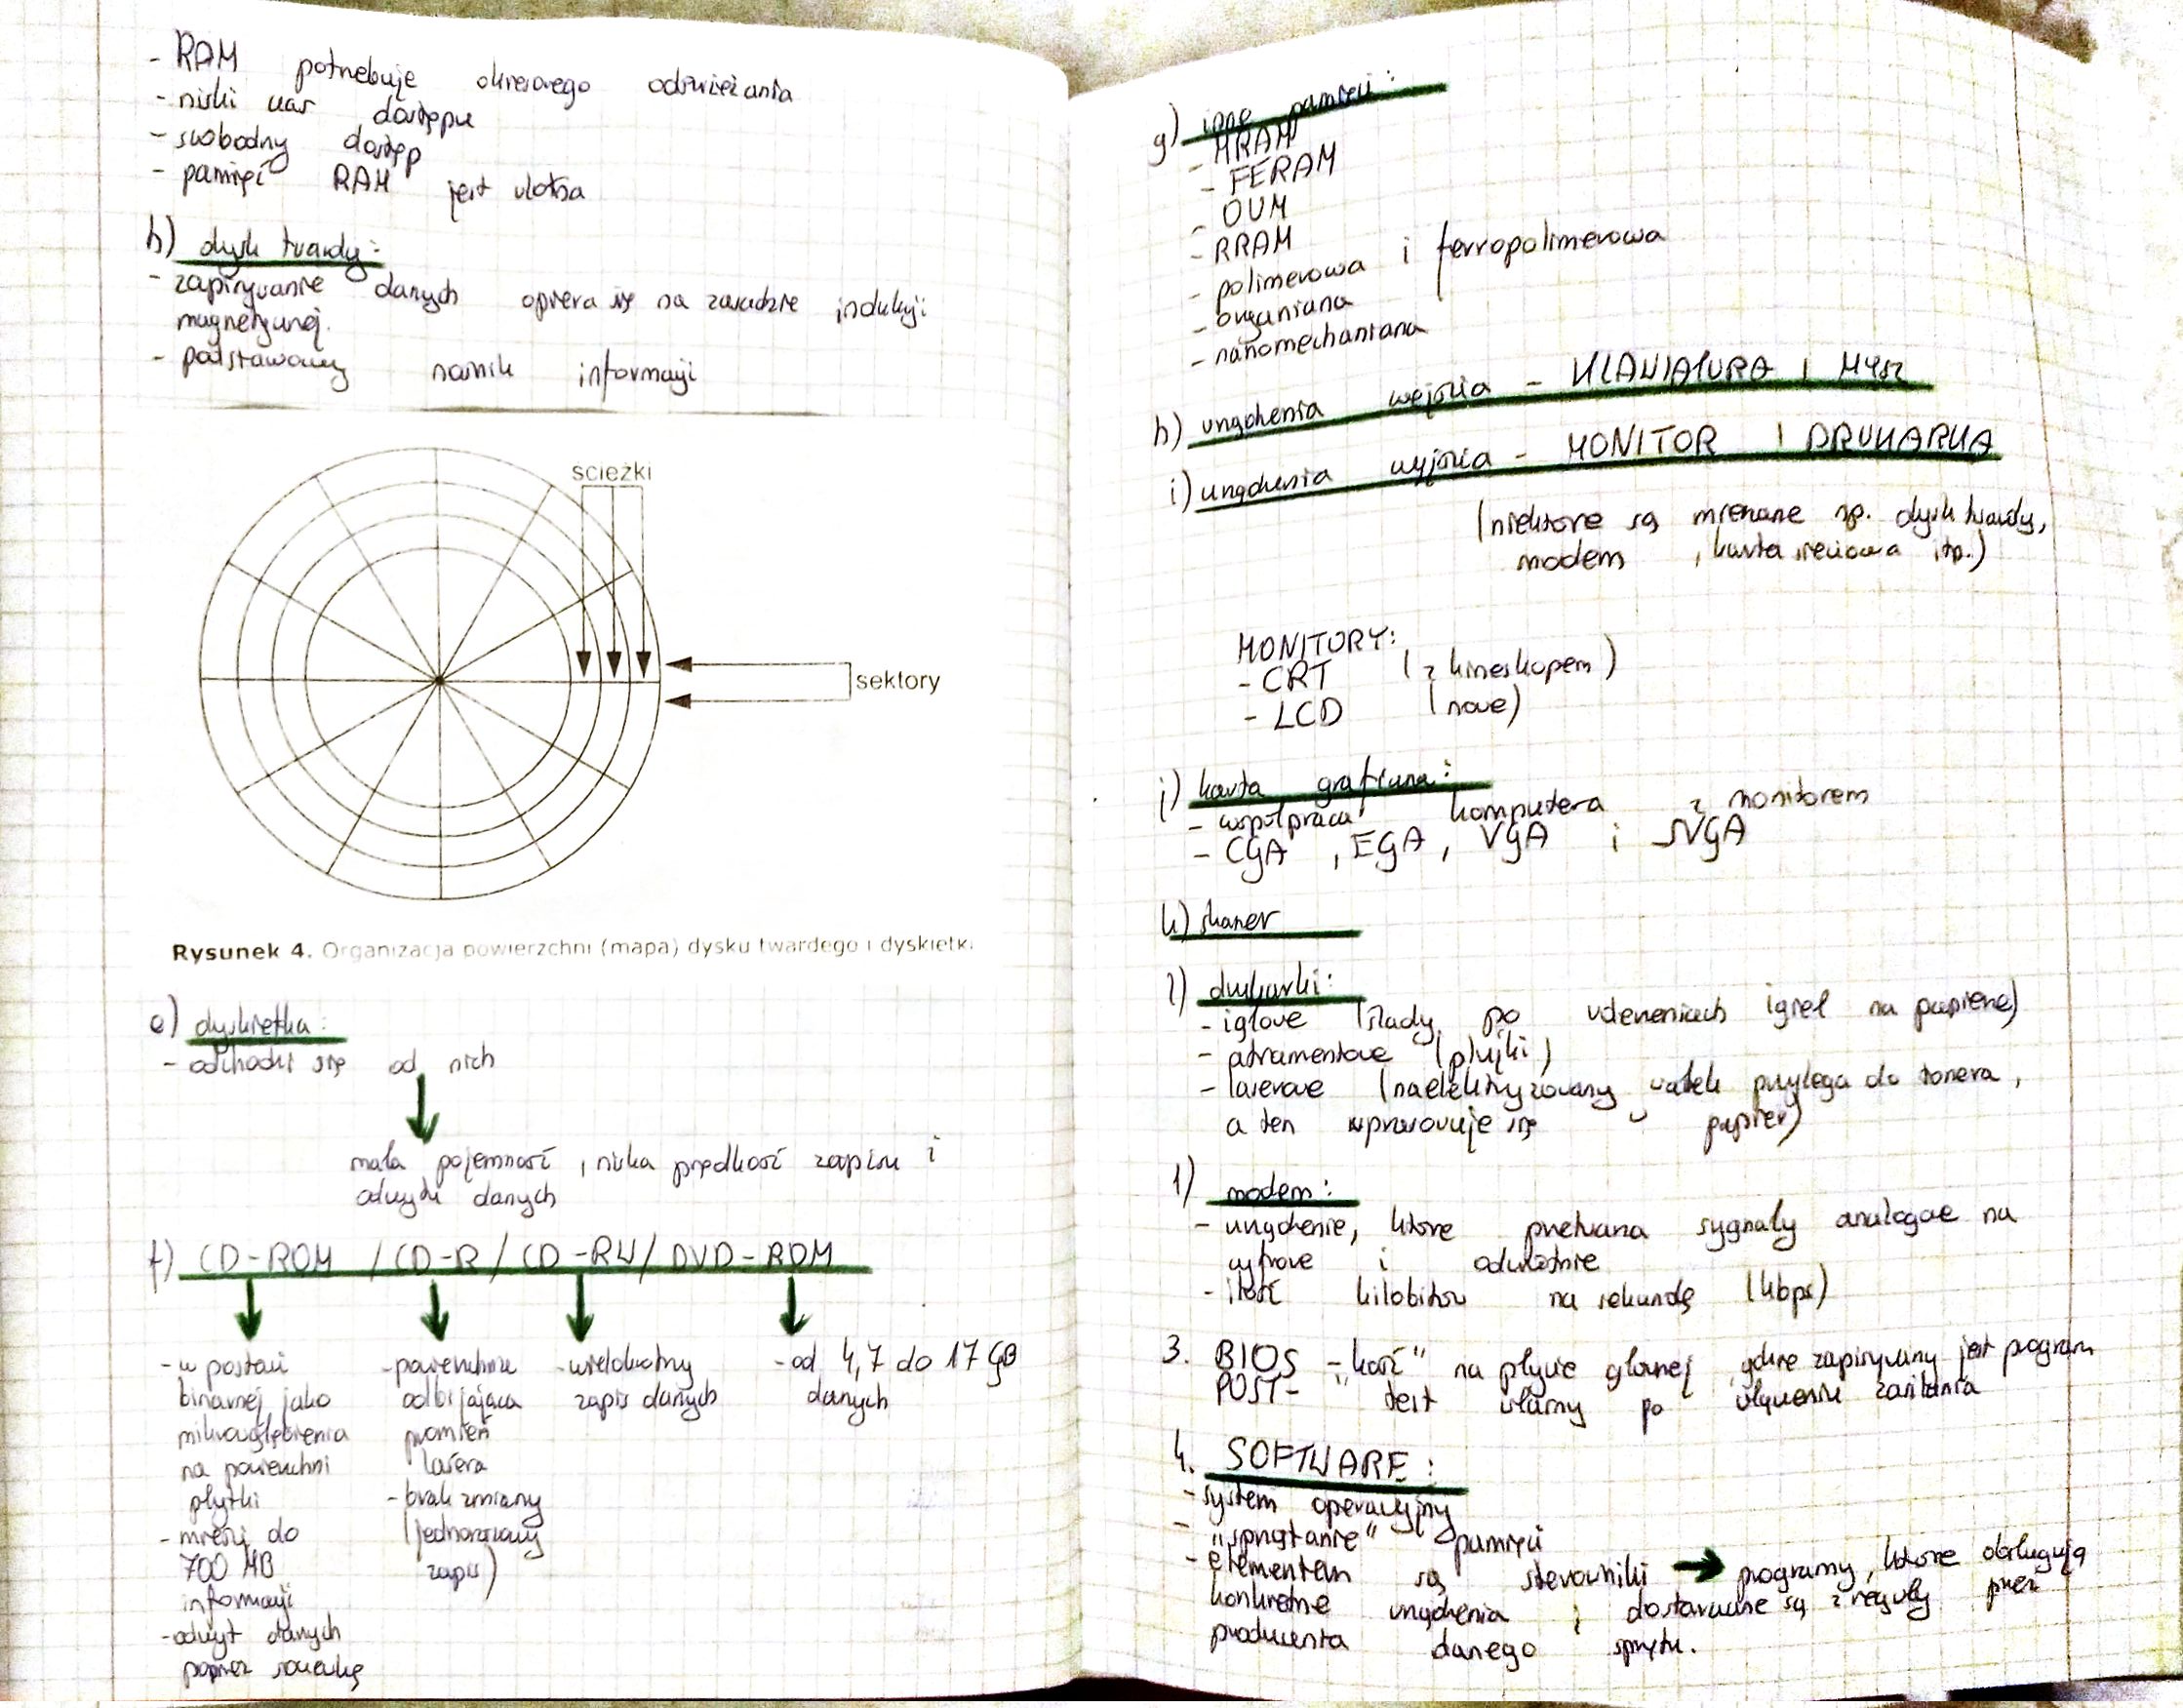 - RAM potrzebuje okresowego odświeżania
- niski czas dostępu
- swobodny dostęp
- pamięć RAM jest ulotna
h) dysk twardy:
- zapisywanie danych opiera się na zasadzie indukcji
magnetycznej.
- podstawowy nośnik informacji
ścieżki
sektory
Rysunek 4. Organizacja powierzchni (mapa) dysku twardego i dyskietki
e) dyskietka:
- odchodzi się od nich
mała pojemność, niska prędkość zapisu i
odczytu danych
f) CD-ROM / CD-R / CD-RW / DVD-ROM
- w postaci
binarnej jako
mikrogłębienia
na powierzchni
płytki
- mieści do
700 MB
informacji
- odczyt danych
poprzez soczewkę
- powierzchnia
odbijająca
promień
lasera
- brak zmiany
(jednorazowy
zapis)
- wielokrotny
zapis danych
- od 4,7 do 17 GB
danych
g) inne pamięci:
- MRAM
- FERAM
- OUM
- RRAM
- polimerowa i ferropolimerowa
- organiczna
- nanomechaniczna
h) urządzenia wejścia - KLAWIATURA I MYSZ
i) urządzenia wyjścia - MONITOR I DRUKARKA
(niektóre są mieszane np. dysk twardy,
modem, karta sieciowa itp.)
MONITORY:
- CRT (z kineskopem)
- LCD (nowe)
j) karta graficzna:
- współpraca komputera z monitorem
- CGA, EGA, VGA i SVGA
k) skaner
l) drukarki:
- igłowe (ślady po uderzeniach igieł na papierze)
- atramentowe (plujki)
- laserowe (naelektryzowany wałek przylega do tonera,
a ten wprasowuje się w papier)
ł) modem:
- urządzenie, które przetwarza sygnały analogowe na
cyfrowe i odwrotnie
- ilość kilobitów na sekundę (kbps)
3. BIOS - „kość" na płycie głównej, gdzie zapisywany jest program
POST - test własny po włączeniu zasilania
4. SOFTWARE:
- system operacyjny
- „sprzątanie" pamięci
- elementem są sterowniki → programy, które obsługują
konkretne urządzenia i dostarczane są z reguły przez
producenta danego sprzętu.